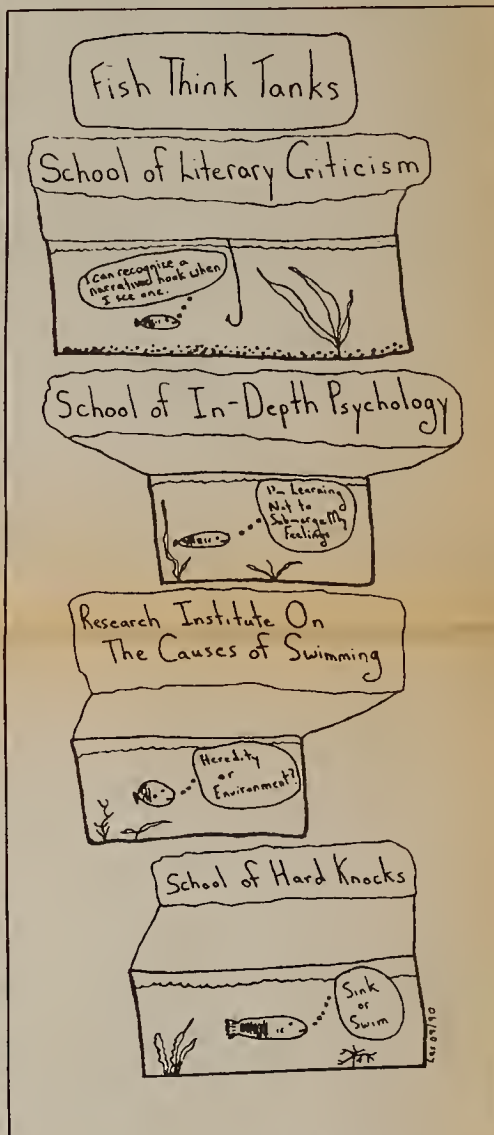 Fish Think Tanks
School of Literary Criticism
I can recognize a
narrative hook when
I see one.
School of In-Depth Psychology
I'm Learning
Not to
Submerge My
Feelings
Research Institute On
The Causes of Swimming
Heredity
or
Environment?
School of Hard Knocks
Sink
or
Swim
09/90